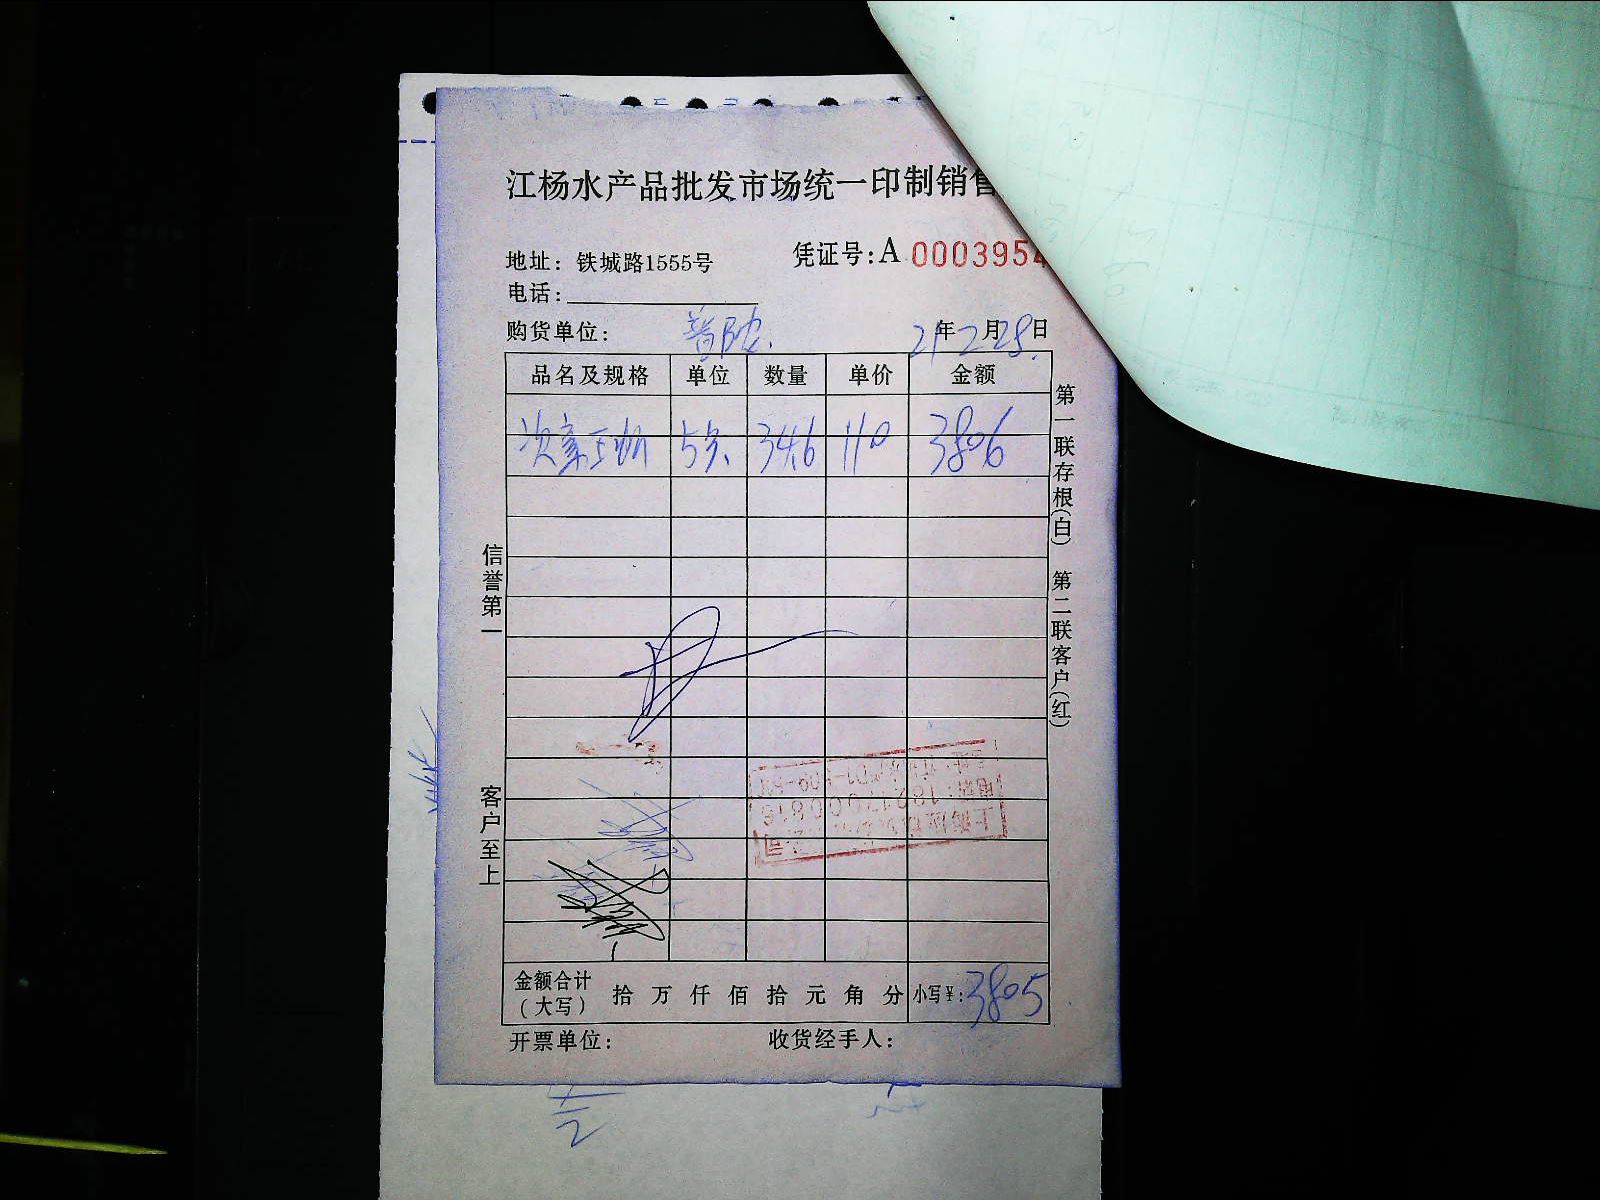 江杨水产品批发市场统一印制销售
地址: 铁城路1555号
凭证号: A 0003954
电话:
购货单位: 普陀. 21年2月28日
品名及规格 单位 数量 单价 金额
5只 34.6 110 3806
第一联存根(白) 第二联客户(红)
信誉第一
客户至上
金额合计(大写) 拾 万 仟 佰 拾 元 角 分 小写¥: 3805
开票单位: 收货经手人: